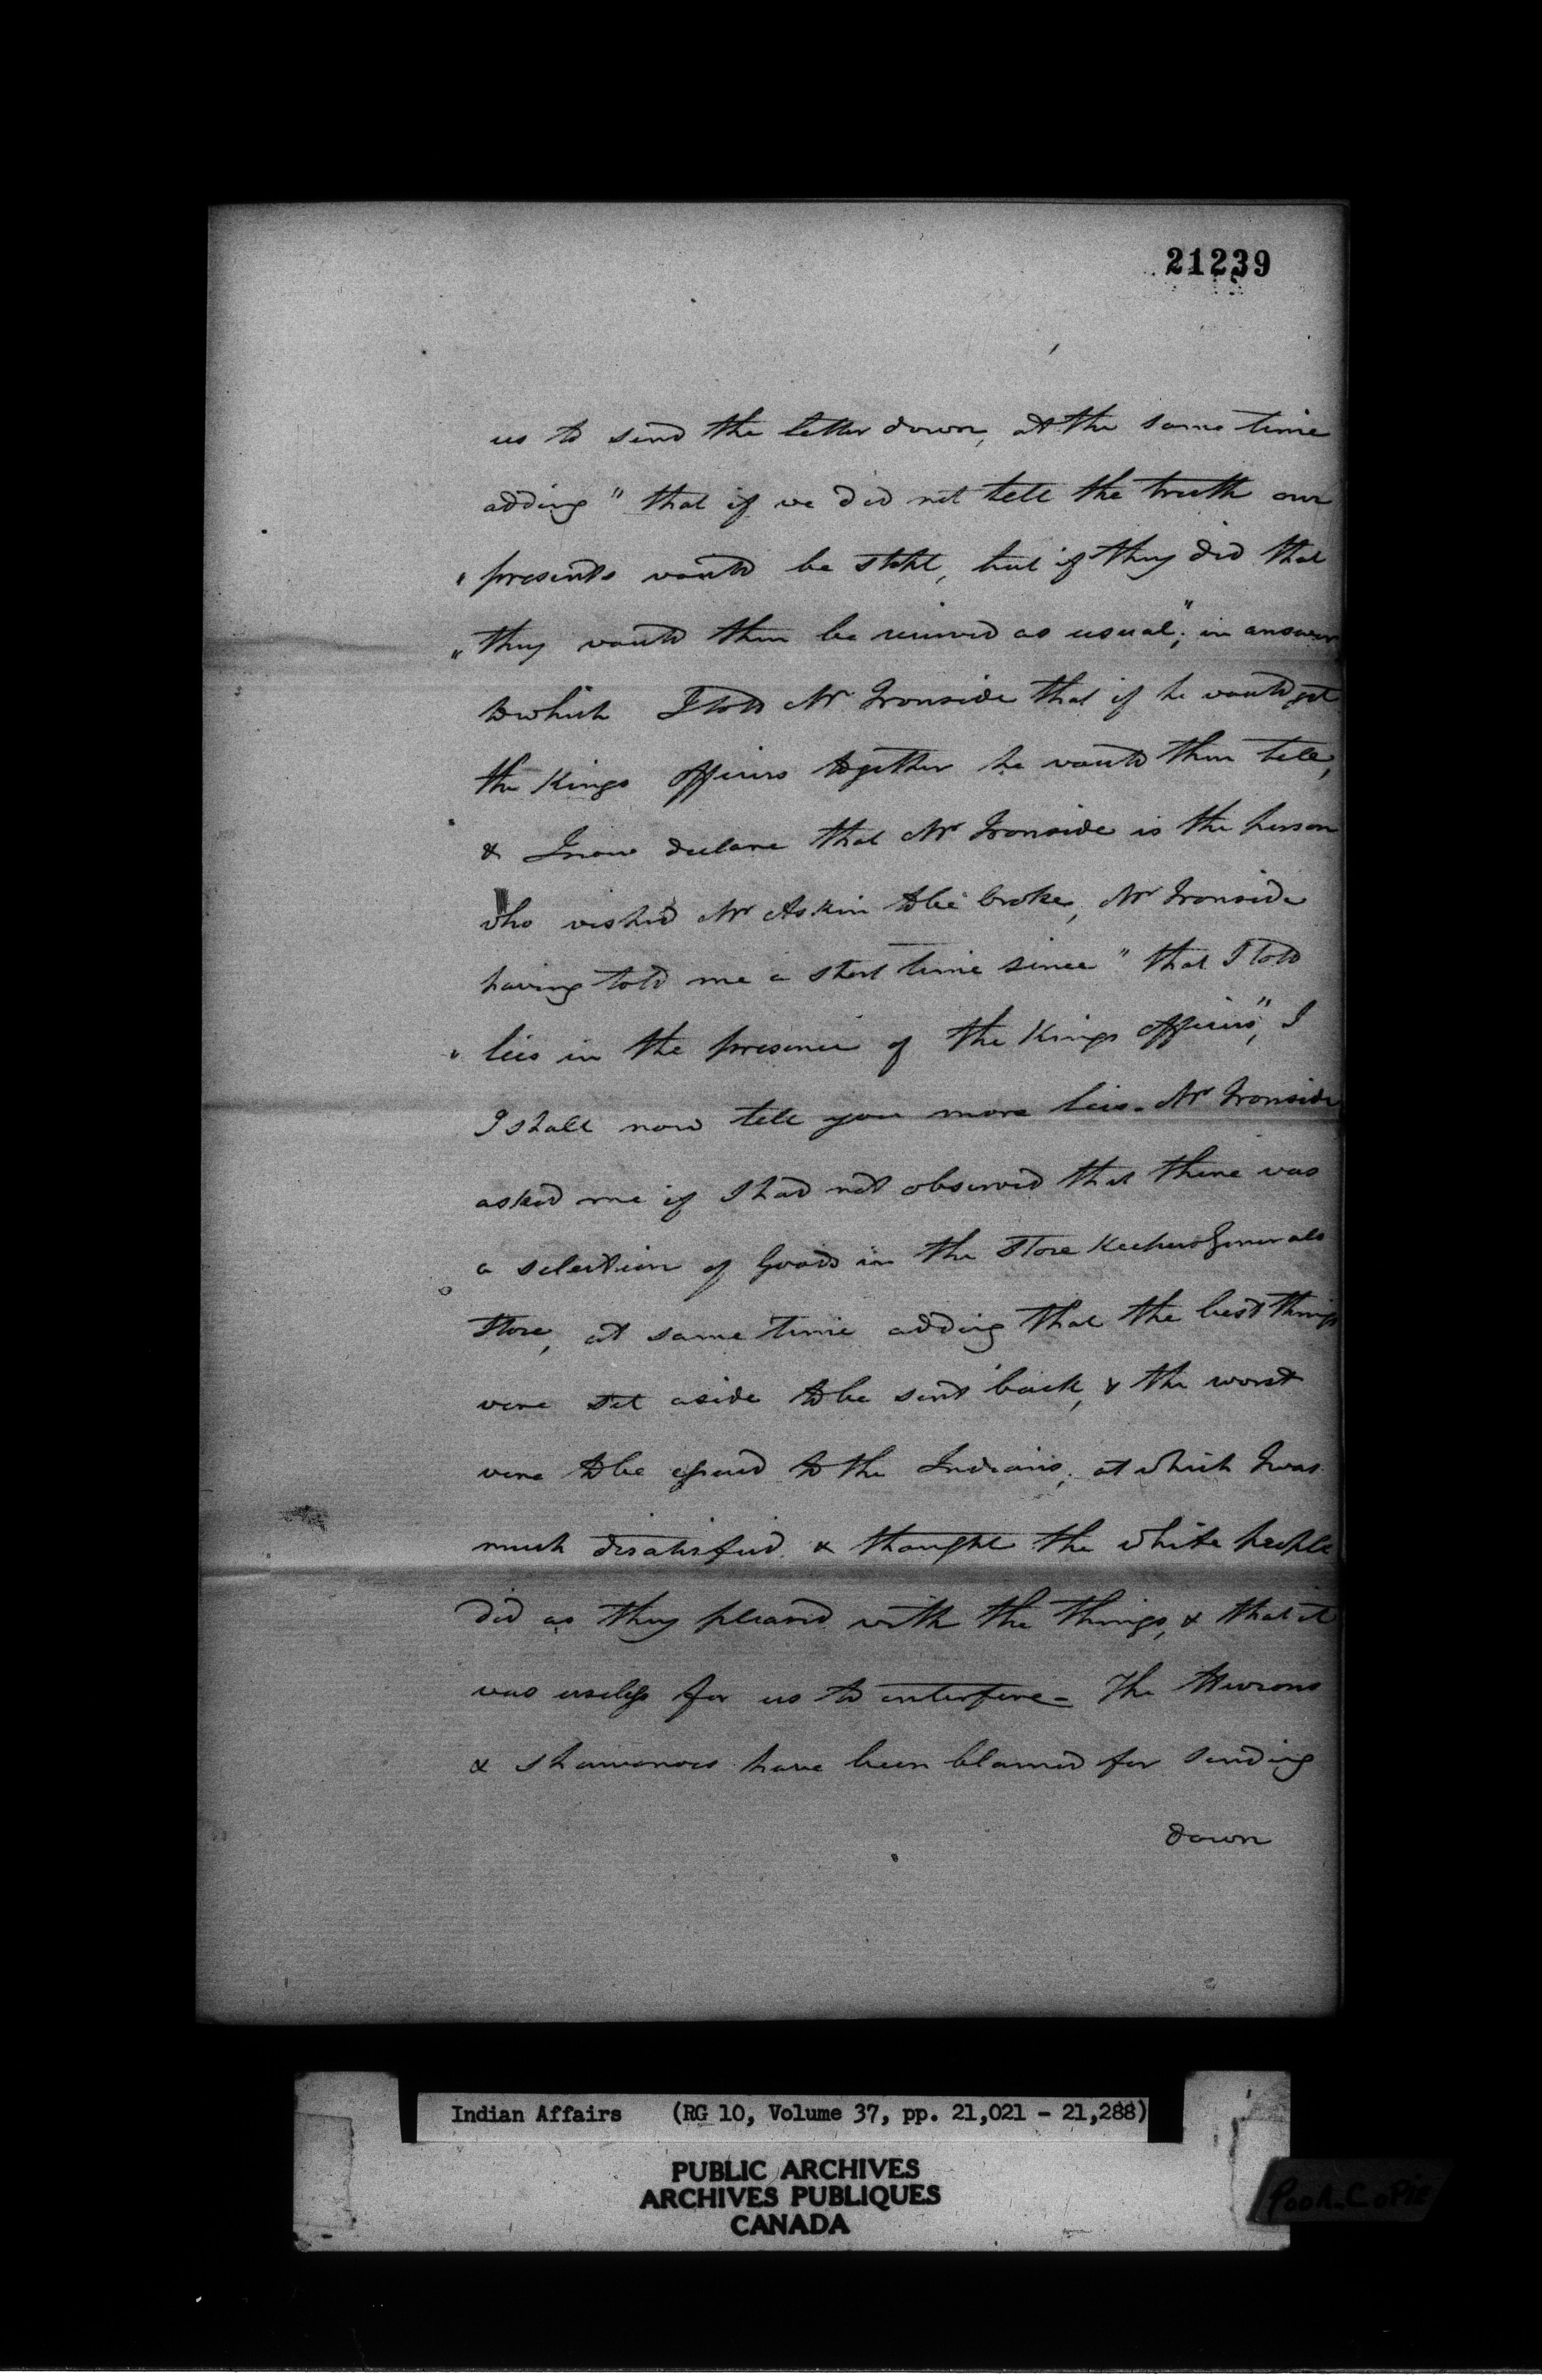 21239
us to send the letter down, at the same time
adding " that if we did not tell the truth our
" presents would be stopt, but if they did that
" they would then be issued as usual", in answer
to which I told Mr Ironside that if he would get
the Kings Officers together he would then tell,
& I now declare that Mr Ironside is the person
who wished Mr Askin to be broke, Mr Ironside
having told me a short time since " that I told
" lies in the presence of the Kings Officers", I
I shall now tell you more lies. Mr Ironside
asked me if I had not observed that there was
a selection of Goods in the Store Keeper Generals
Store, at same time adding that the best things
were set aside to be sent back, & the worst
were to be issued to the Indians, at which I was
much disatisfied & thought the white people
did as they pleased with the things, & that it
was useless for us to interfere - The Hurons
& Shawanoes have been blamed for sending
down
Indian Affairs (RG 10, Volume 37, pp. 21,021 - 21,288)
PUBLIC ARCHIVES
ARCHIVES PUBLIQUES
CANADA
Poor Copie